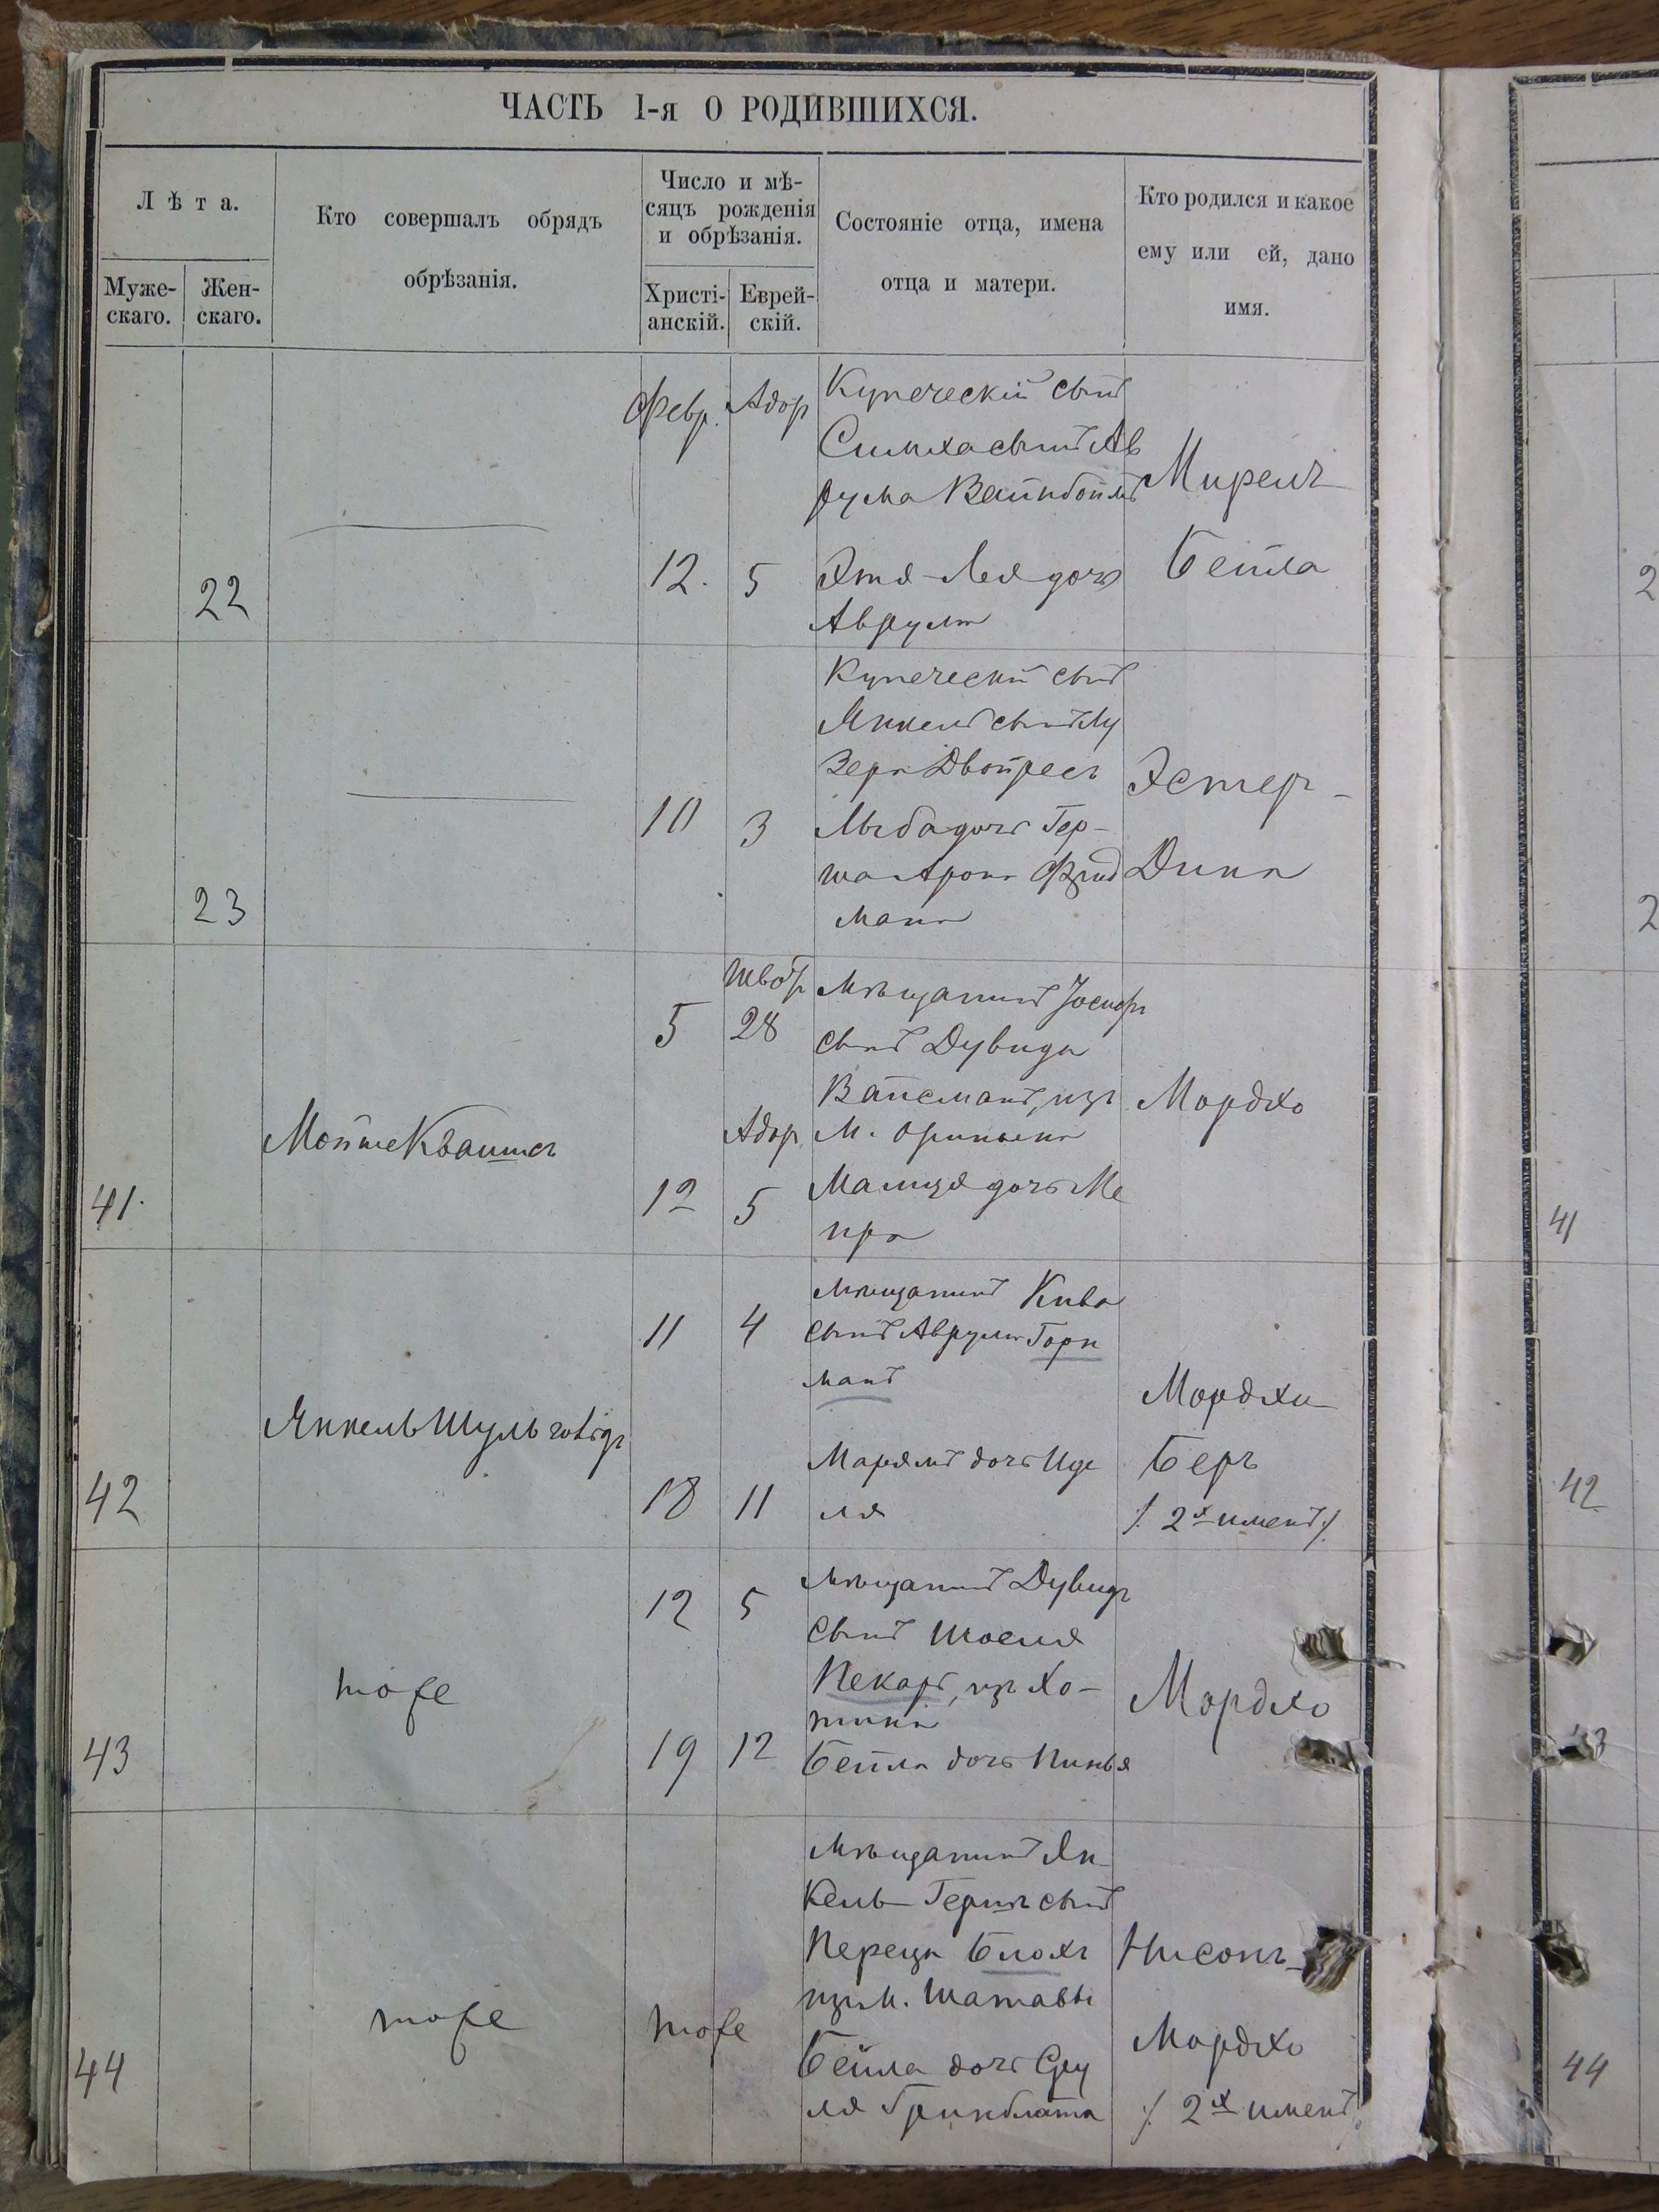 ЧАСТЬ 1-я О РОДИВШИХСЯ.
Лѣта.
Муже-
скаго.
Жен-
скаго.
Кто совершалъ обрядъ
обрѣзанія.
Число и мѣ-
сяцъ рожденія
и обрѣзанія.
Христі-
анскій.
Еврей-
скій.
Состояніе отца, имена
отца и матери.
Кто родился и какое
ему или ей, дано
имя.
22
Февр.
12.
Адор
5
Купеческій сынъ
Симха сынъ Ав
рума Вайнбоймъ
Этя-Лея дочь
Аврума
Мирель
Бейла
23
10
3
Купеческій сынъ
Янкель сынъ Лу
зера Двойресъ
Лыба дочь Гер-
ша Арона Фрид
мана
Эстер-
Дина
41.
Мойше Квашисъ
5
12
28
Адор
5
Мѣщанинъ Іосифъ
сынъ Дувида
Вайсманъ, изъ
м. Оринина
Малця дочь Ме
ира
Мордхо
42
Янкель
11
18
4
11
Мѣщанинъ Кива
сынъ Аврума Горн
манъ
Марямъ дочь Иде
ля
Мордхи
Беръ
/. 2х именъ /.
43
тоже
12
19
5
12
Мѣщанинъ Дувидъ
сынъ Шоеля
Пекарь, изъ Хо-
тина
Бейла дочь Пинься
Мордхо
44
тоже
тоже
Мѣщанинъ Ян
кель-Гершъ сынъ
Переца Блохъ
изъ м. Шатавы
Бейла дочь Сру
ля Гринблата
Нисонъ-
Мордхо
/. 2х именъ
2
2
41
42
43
44